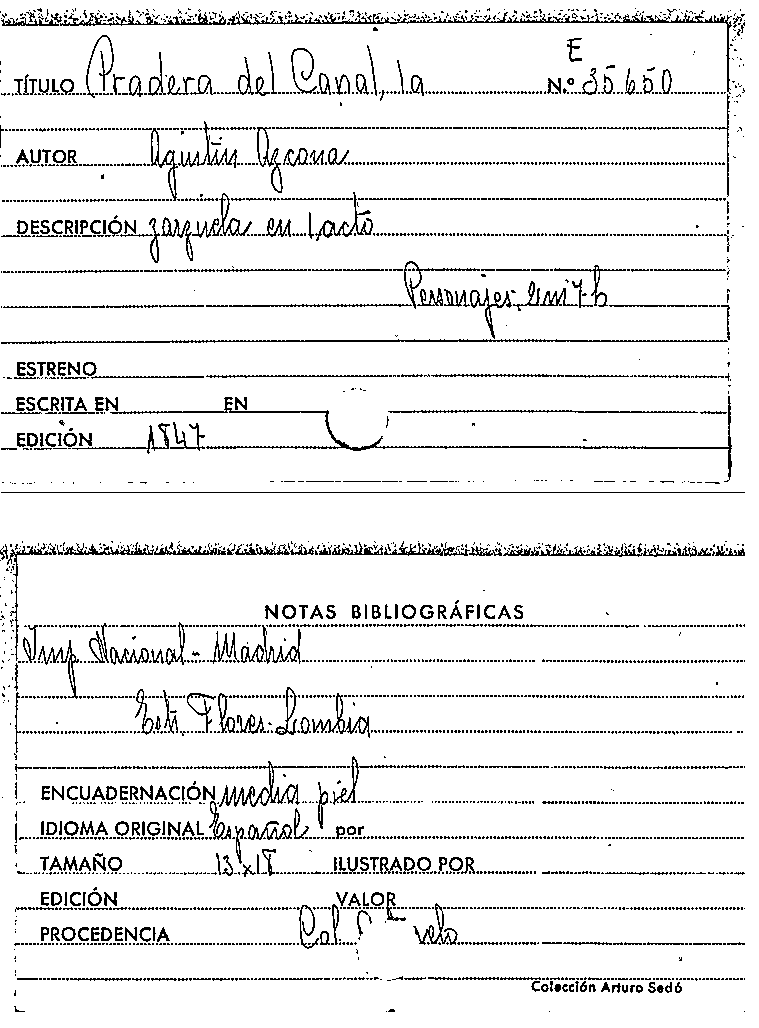 E
TÍTULO Pradera del Canal, la N.º 35650
AUTOR Agustín Azcona
DESCRIPCIÓN zarzuela en 1 acto
Personajes
ESTRENO
ESCRITA EN EN
EDICIÓN 1847
NOTAS BIBLIOGRÁFICAS
Imp Nacional - Madrid
Flores-Lombia
ENCUADERNACIÓN media piel
IDIOMA ORIGINAL Español por
TAMAÑO 13x18 ILUSTRADO POR
EDICIÓN VALOR
PROCEDENCIA Col
Colección Arturo Sedó